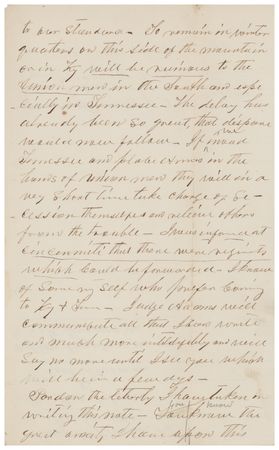 to our standard - To remain in winter
quarters on this side of the mountain
or in Ky will be ruinous to the
Union men in the South and espe
cially in Tennessee - The delay has
already been so great, that despair
would now follow - If we invade
Tennessee and place arms in the
hands of Union men they will in a
very short time take charge of Se-
cession themselves and relieve others
from the trouble - I was informed at
Cincinnati that there were regiments
which could be forwarded - I know
of some myself who prefer coming
to Ky & Tenn - Judge Adams will
communicate all that I can write
and much more intelligibly and will
say no more until I see you which
will be in a few days -
Pardon the liberty I have taken in
writing this note - You know the
great anxiety I have upon this